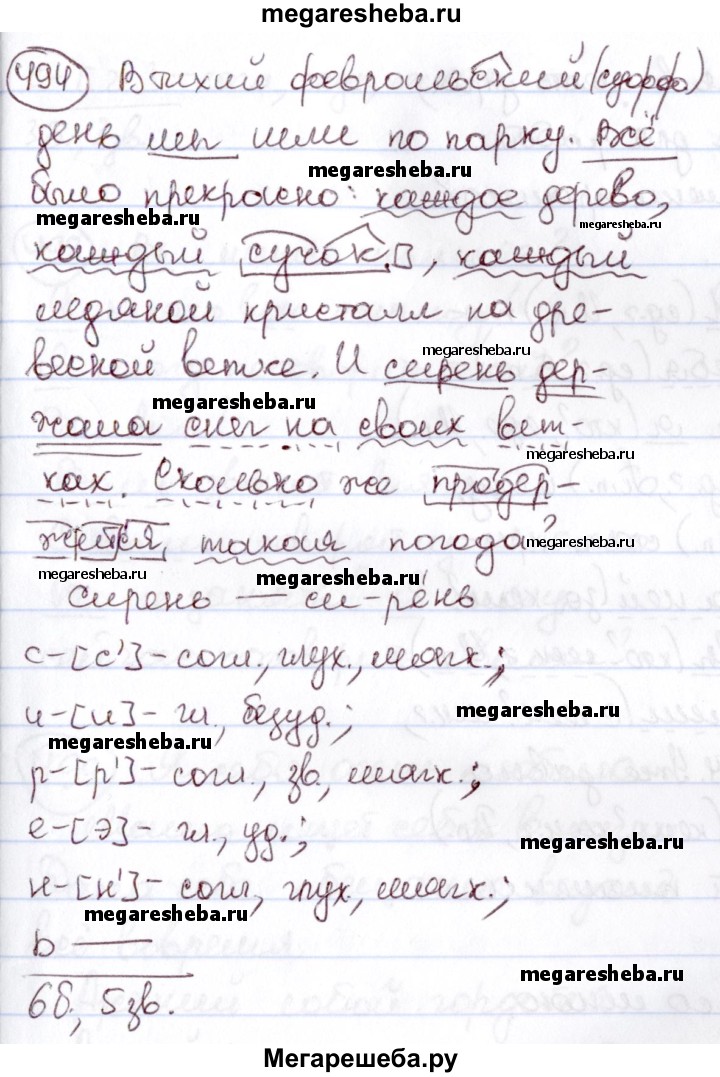 megaresheba.ru
494 В тихий февральский (суффо)
день мы шли по парку. Всё
megaresheba.ru
было прекрасно: каждое дерево,
megaresheba.ru
megaresheba.ru
каждый сучок, каждый
ледяной кристалл на дре-
весной ветке. И сирень дер-
megaresheba.ru
megaresheba.ru
жала снег на своих вет-
megaresheba.ru
ках. Сколько же продер-
жится такая погода?
megaresheba.ru
megaresheba.ru
megaresheba.ru
сирень — си-рень
с-[с']-согл., глух., мягк.;
и-[и]- гл., безуд.;
megaresheba.ru
megaresheba.ru
р-[р']-согл., зв., мягк.;
е-[э]- гл., уд.;
megaresheba.ru
н-[н']-согл., глух., мягк.;
megaresheba.ru
ь —
megaresheba.ru
6б, 5зв.
Мегарешеба.ру